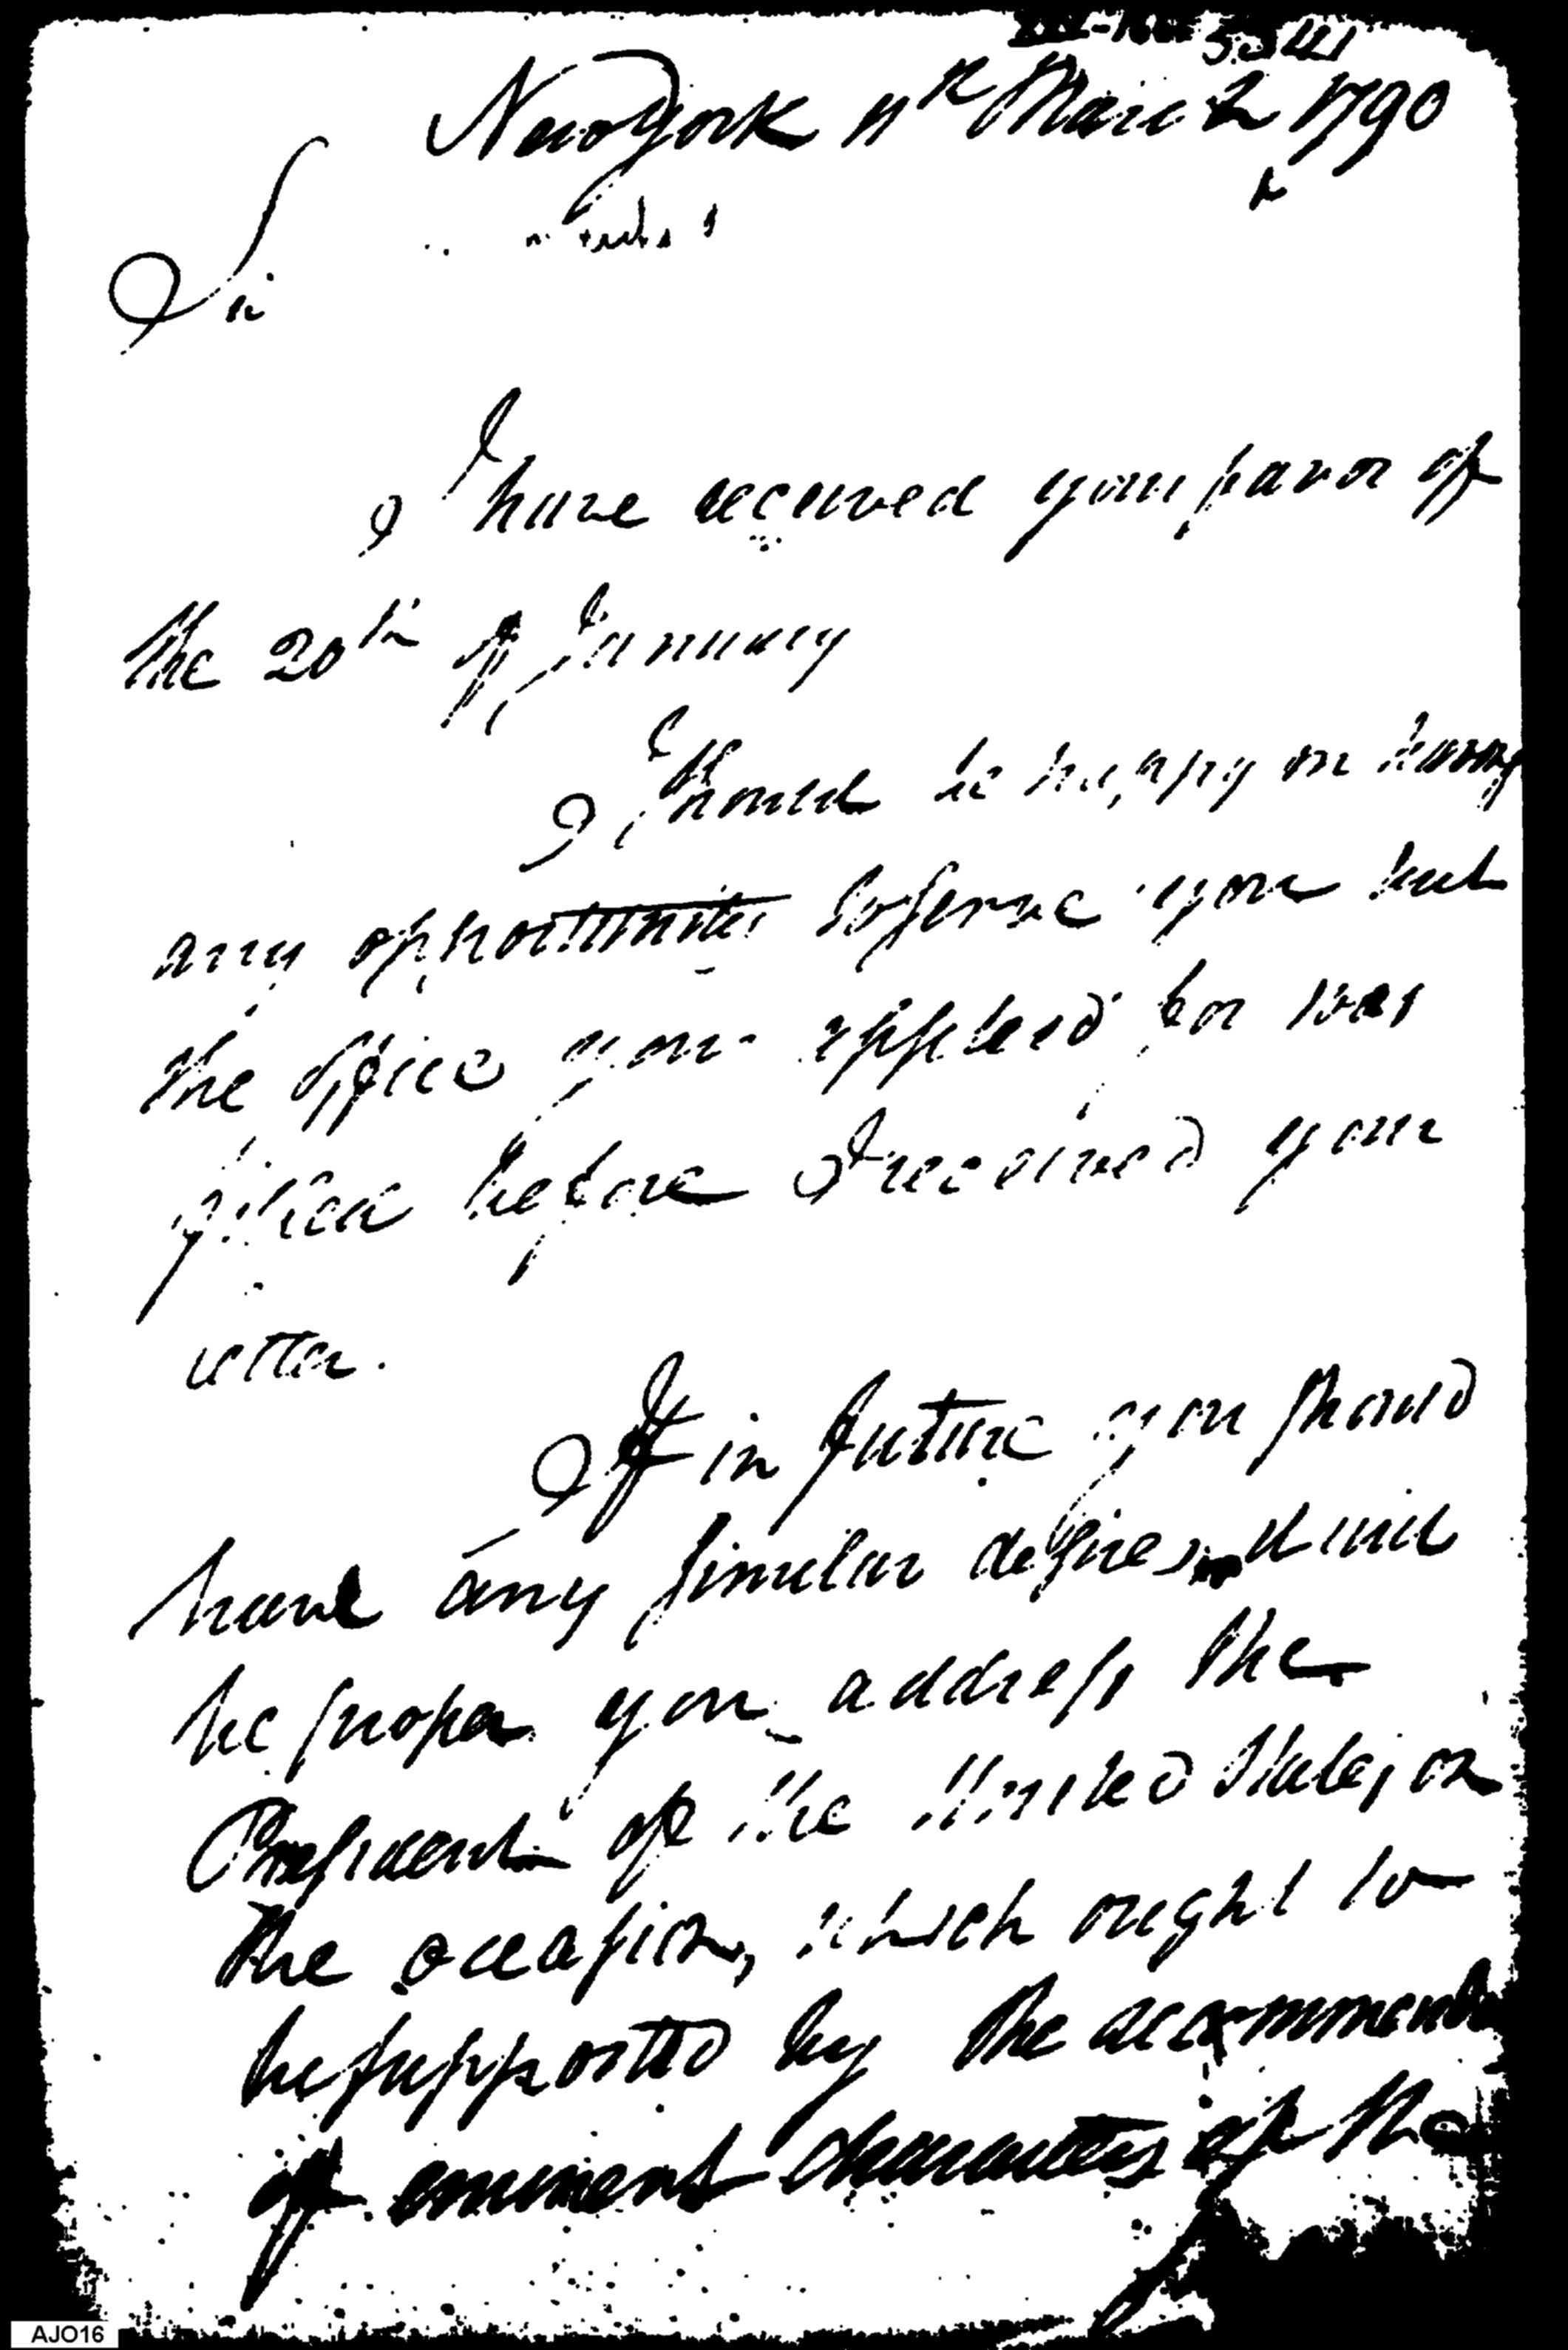 New York 11th March 1790
Sir
I have received your favor of
the 20th of January
I should be happy on having
any opportunities to serve you but
the office you applied for was
filled before I received your
letter.
If in future you should
have any similar desires it will
be proper you address the
President of the United States, on
the occasion, which ought to
be supported by the recommenda
of eminent characters of the
AJO16